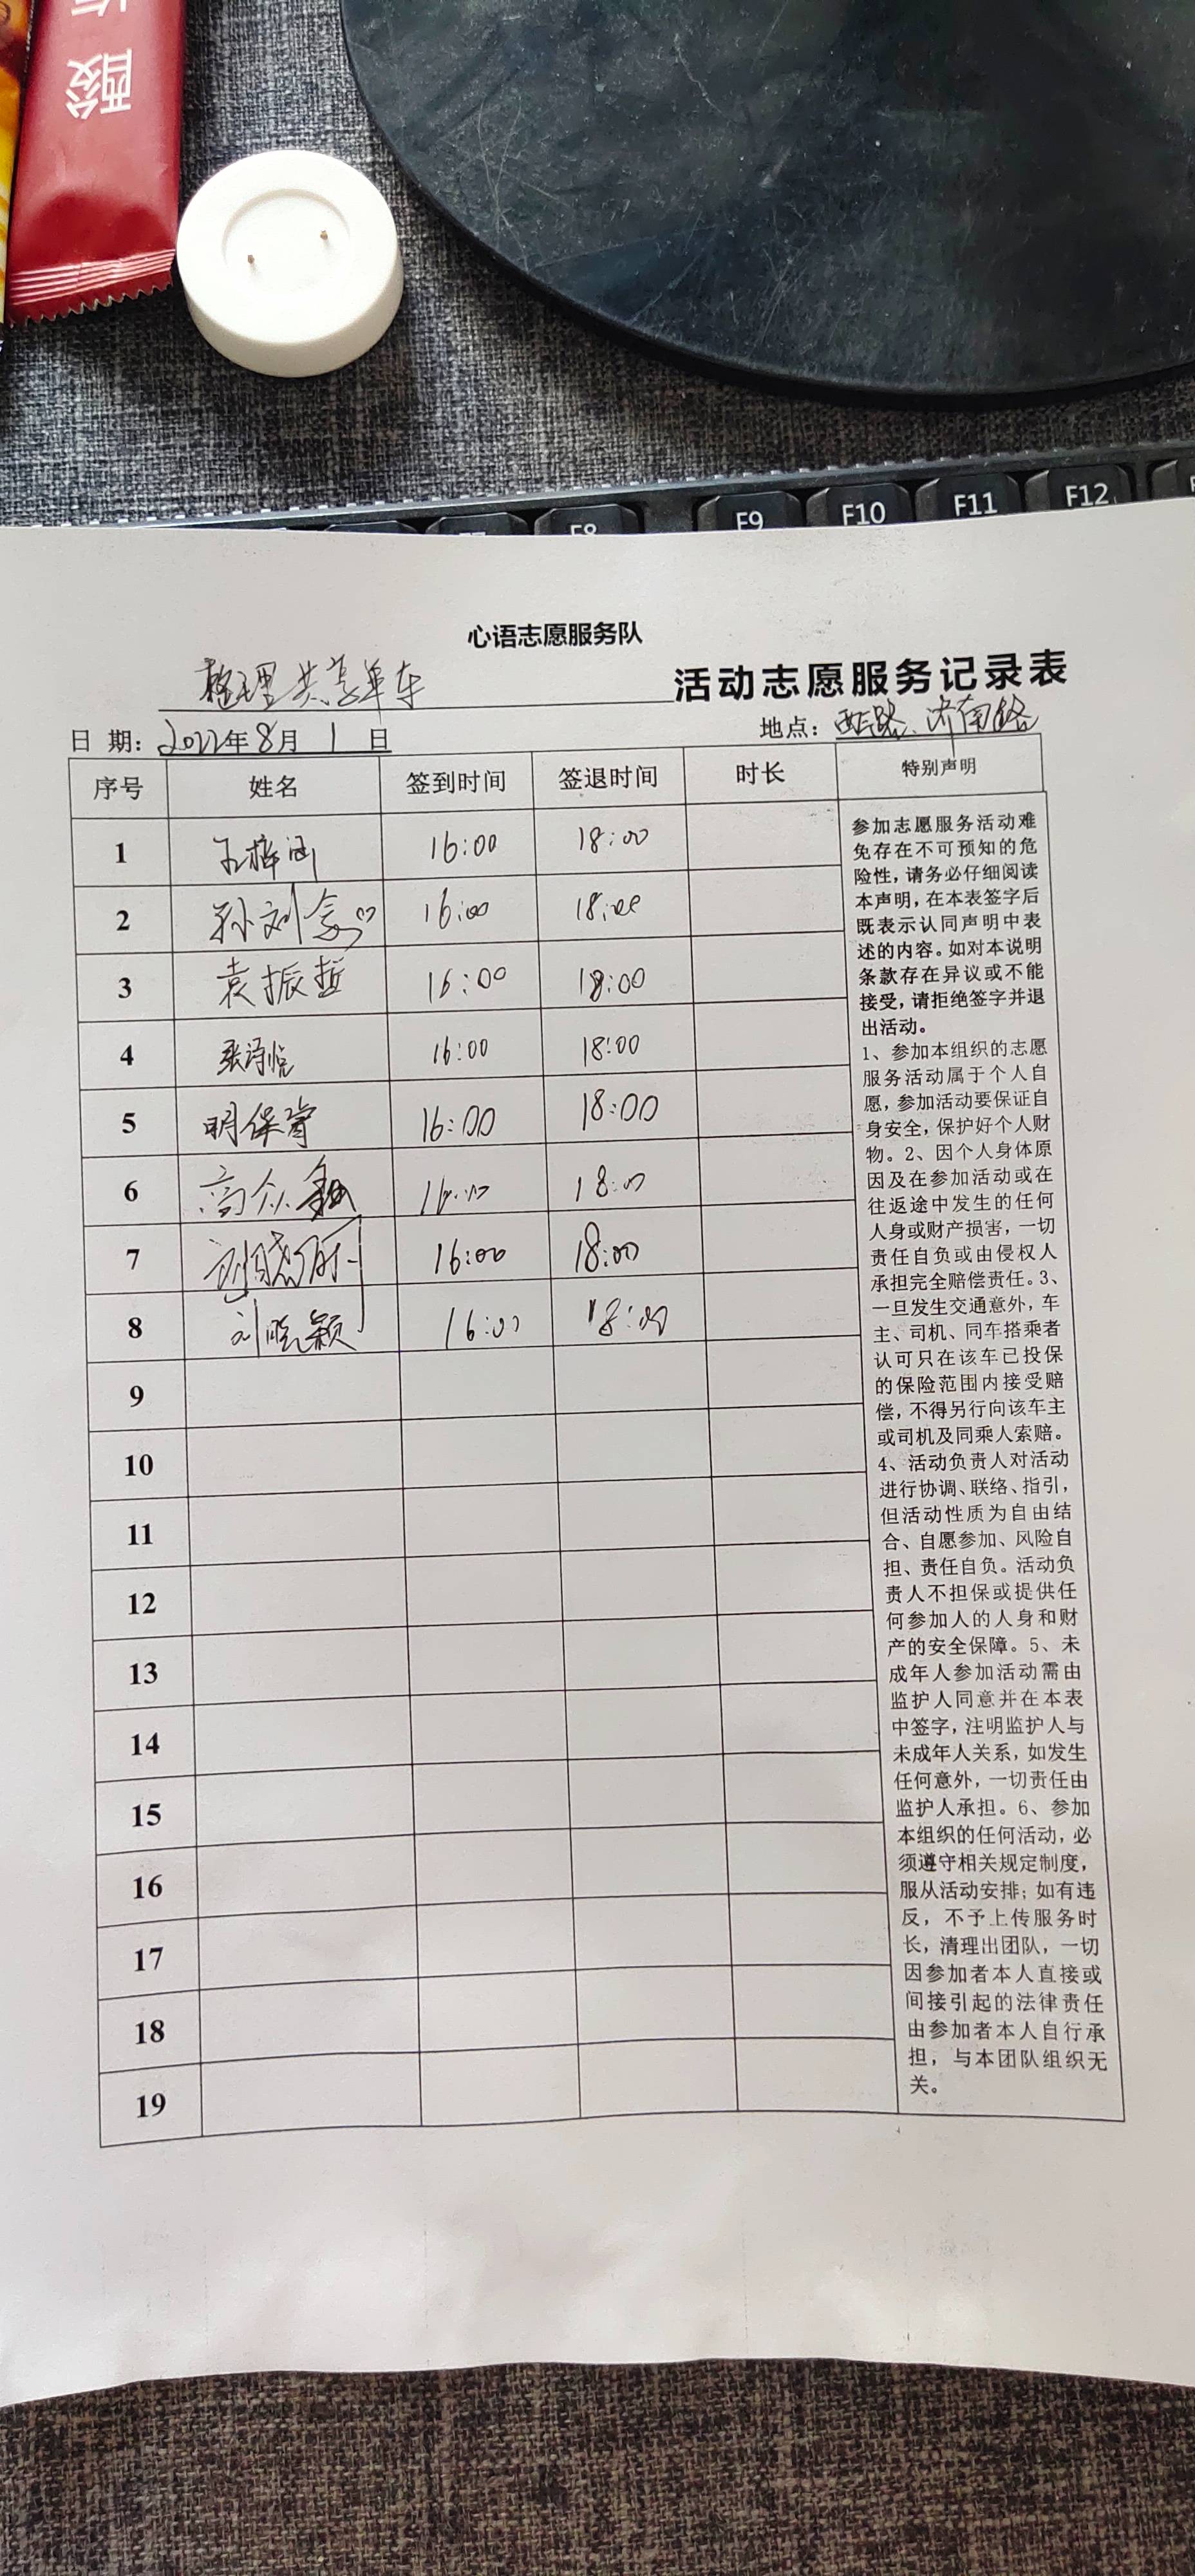 酸
F8
F9
F10
F11
F12
心语志愿服务队
整理共享单车 活动志愿服务记录表
日 期：2022年8月1日 地点：西二路、济南路
序号 姓名 签到时间 签退时间 时长 特别声明
1 王梓涵 16:00 18:00
2 孙刘念 16:00 18:00
3 袁振哲 16:00 18:00
4 张 16:00 18:00
5 明保 16:00 18:00
6 高众 16:00 18:00
7 刘晓 16:00 18:00
8 刘晓颖 16:00 18:00
9
10
11
12
13
14
15
16
17
18
19
参加志愿服务活动难
免存在不可预知的危
险性，请务必仔细阅读
本声明，在本表签字后
既表示认同声明中表
述的内容。如对本说明
条款存在异议或不能
接受，请拒绝签字并退
出活动。
1、参加本组织的志愿
服务活动属于个人自
愿，参加活动要保证自
身安全，保护好个人财
物。2、因个人身体原
因及在参加活动或在
往返途中发生的任何
人身或财产损害，一切
责任自负或由侵权人
承担完全赔偿责任。3、
一旦发生交通意外，车
主、司机、同车搭乘者
认可只在该车已投保
的保险范围内接受赔
偿，不得另行向该车主
或司机及同乘人索赔。
4、活动负责人对活动
进行协调、联络、指引，
但活动性质为自由结
合、自愿参加、风险自
担、责任自负。活动负
责人不担保或提供任
何参加人的人身和财
产的安全保障。5、未
成年人参加活动需由
监护人同意并在本表
中签字，注明监护人与
未成年人关系，如发生
任何意外，一切责任由
监护人承担。6、参加
本组织的任何活动，必
须遵守相关规定制度，
服从活动安排；如有违
反，不予上传服务时
长，清理出团队，一切
因参加者本人直接或
间接引起的法律责任
由参加者本人自行承
担，与本团队组织无
关。